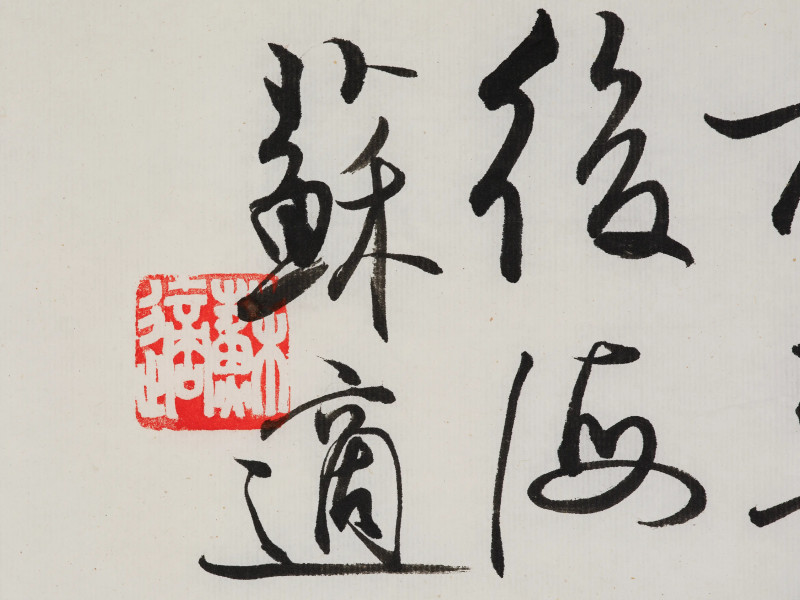 後海
蘇適
蘇適